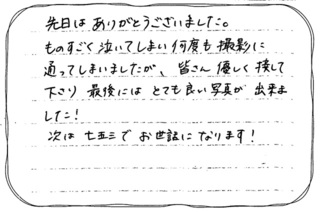 先日は ありがとうございました。
ものすごく泣いてしまい何度も撮影に
通ってしまいましたが、皆さん優しく接して
下さり 最後には とても良い写真が 出来ま
した!
次は 七五三で お世話になります!